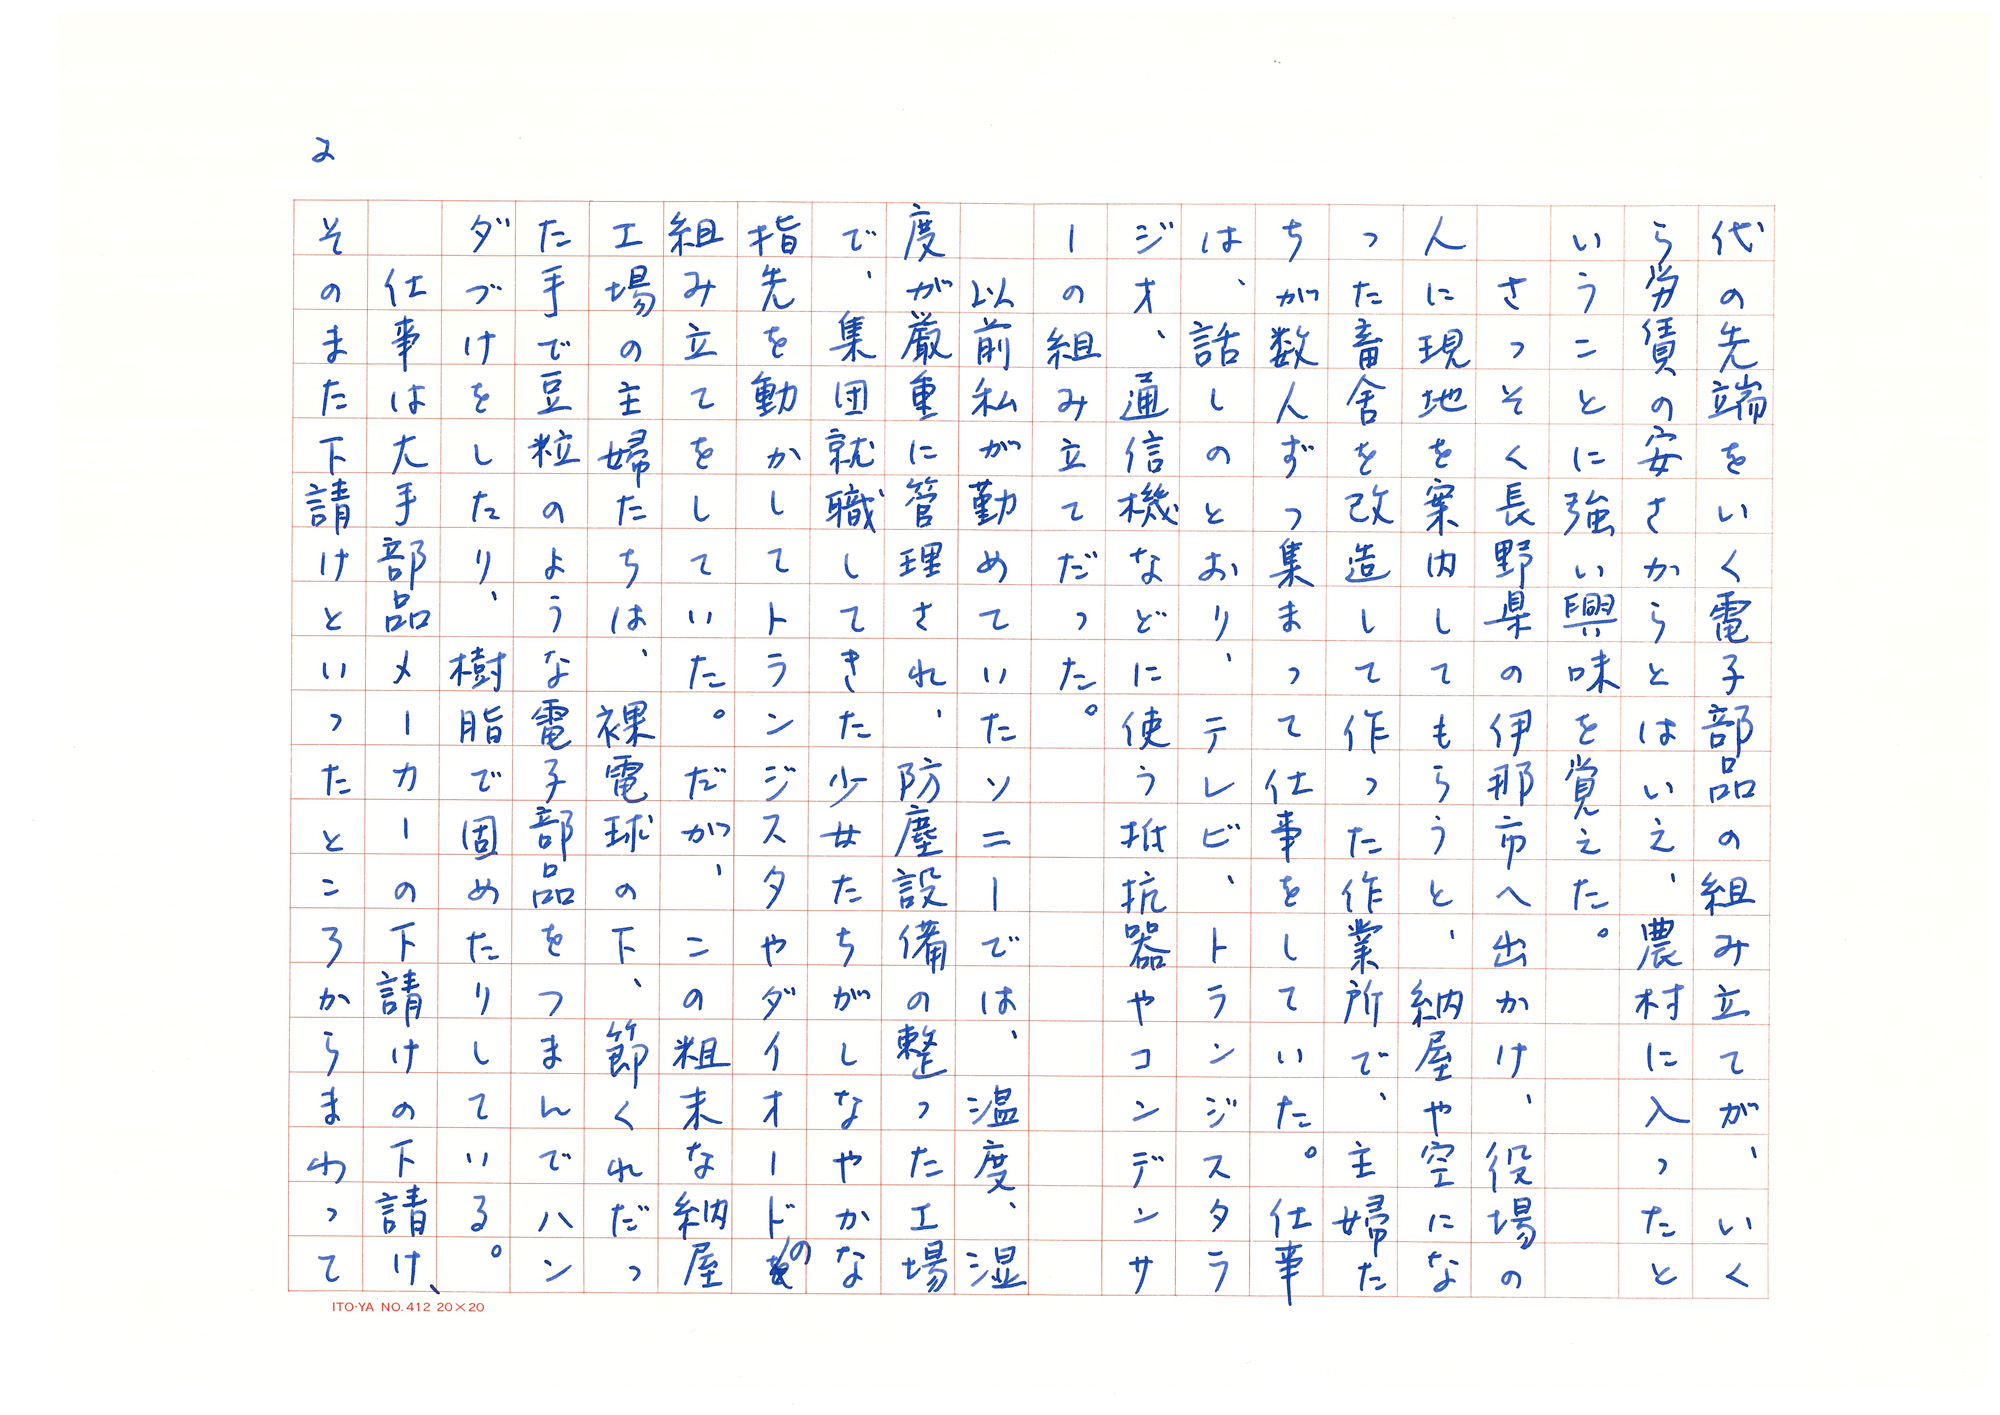 2
代の先端をいく電子部品の組み立てが、いく
ら労賃の安さからとはいえ、農村に入ったと
いうことに強い興味を覚えた。
さっそく長野県の伊那市へ出かけ、役場の
人に現地を案内してもらうと、納屋や空にな
った畜舎を改造して作った作業所で、主婦た
ちが数人ずつ集まって仕事をしていた。仕事
は、話しのとおり、テレビ、トランジスタラ
ジオ、通信機などに使う抵抗器やコンデンサ
ーの組み立てだった。
以前私が勤めていたソニーでは、温度、湿
度が厳重に管理され、防塵設備の整った工場
で、集団就職してきた少女たちがしなやかな
指先を動かしてトランジスタやダイオードの
組み立てをしていた。だが、この粗末な納屋
工場の主婦たちは、裸電球の下、節くれだっ
た手で豆粒のような電子部品をつまんでハン
ダづけをしたり、樹脂で固めたりしている。
仕事は大手部品メーカーの下請けの下請け、
そのまた下請けといったところからまわって
ITO-YA NO.412 20×20